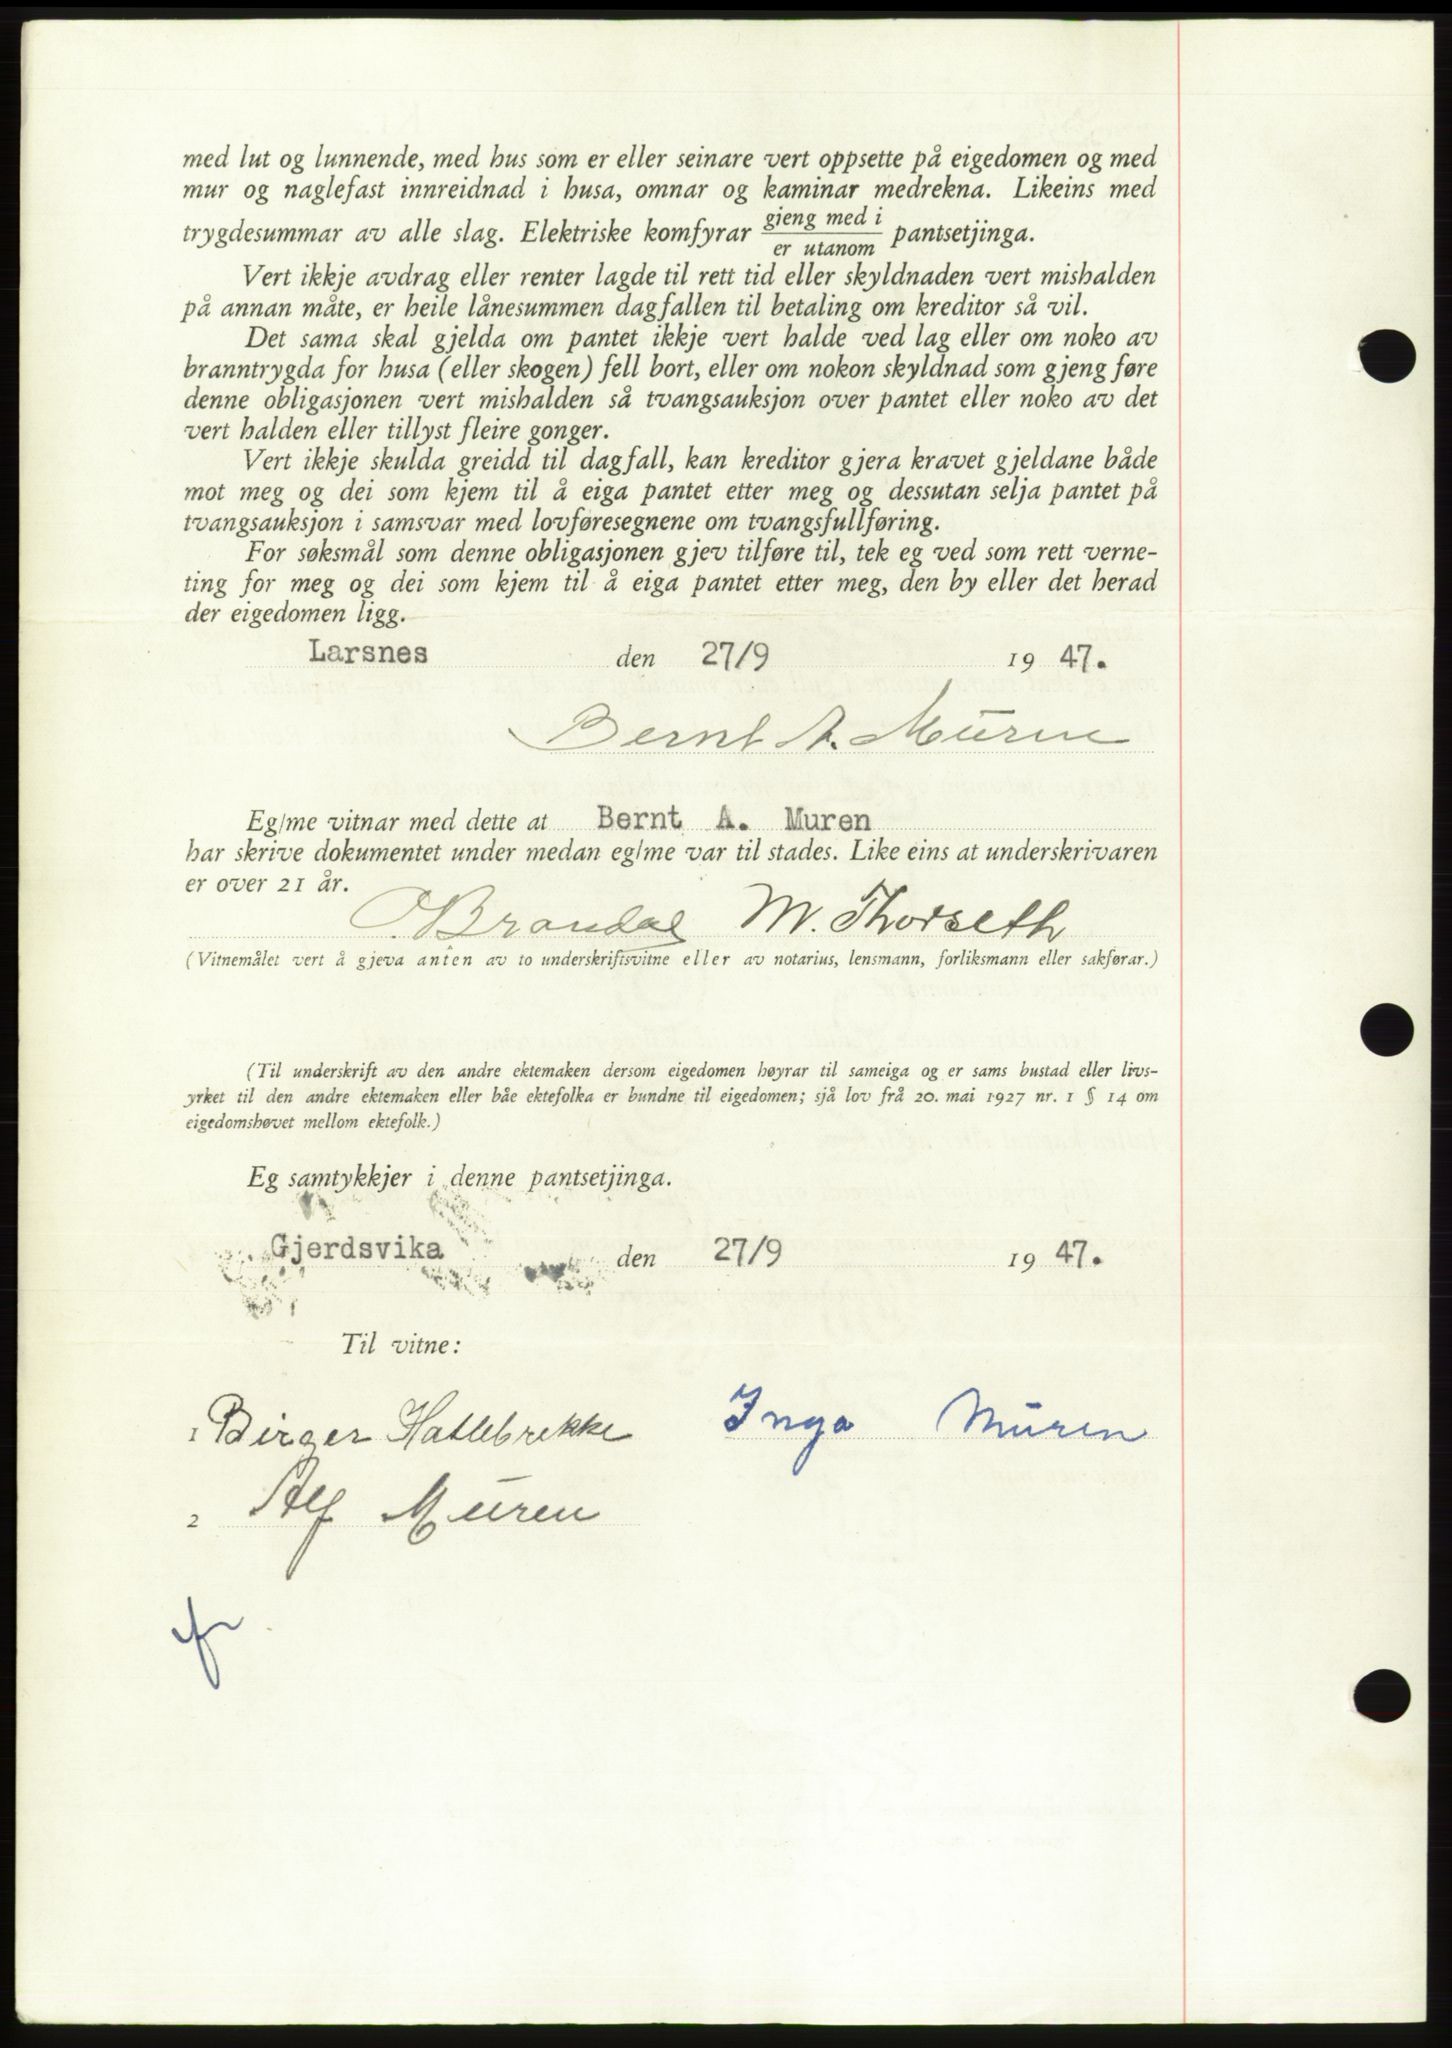 med lut og lunnende, med hus som er eller seinare vert oppsette på eigedomen og med
mur og naglefast innreidnad i husa, omnar og kaminar medrekna. Likeins med
trygdesummar av alle slag. Elektriske komfyrar gjeng med i / er utanom pantsetjinga.
Vert ikkje avdrag eller renter lagde til rett tid eller skyldnaden vert mishalden
på annan måte, er heile lånesummen dagfallen til betaling om kreditor så vil.
Det sama skal gjelda om pantet ikkje vert halde ved lag eller om noko av
branntrygda for husa (eller skogen) fell bort, eller om nokon skyldnad som gjeng føre
denne obligasjonen vert mishalden så tvangsauksjon over pantet eller noko av det
vert halden eller tillyst fleire gonger.
Vert ikkje skulda greidd til dagfall, kan kreditor gjera kravet gjeldane både
mot meg og dei som kjem til å eiga pantet etter meg og dessutan selja pantet på
tvangsauksjon i samsvar med lovføresegnene om tvangsfullføring.
For søksmål som denne obligasjonen gjev tilføre til, tek eg ved som rett verne-
ting for meg og dei som kjem til å eiga pantet etter meg, den by eller det herad
der eigedomen ligg.
Larsnes den 27/9 19 47.
Bernt A. Muren
Eg/me vitnar med dette at Bernt A. Muren
har skrive dokumentet under medan eg/me var til stades. Like eins at underskrivaren
er over 21 år.
O Brandal M. Thorseth
(Vitnemålet vert å gjeva anten av to underskriftsvitne eller av notarius, lensmann, forliksmann eller sakførar.)
(Til underskrift av den andre ektemaken dersom eigedomen høyrar til sameiga og er sams bustad eller livs-
yrket til den andre ektemaken eller båe ektefolka er bundne til eigedomen; sjå lov frå 20. mai 1927 nr. 1 § 14 om
eigedomshøvet mellom ektefolk.)
Eg samtykkjer i denne pantsetjinga.
Gjerdsvika den 27/9 19 47.
Til vitne:
1 Birger Hatlebrekke Inga Muren
2 Alf Muren